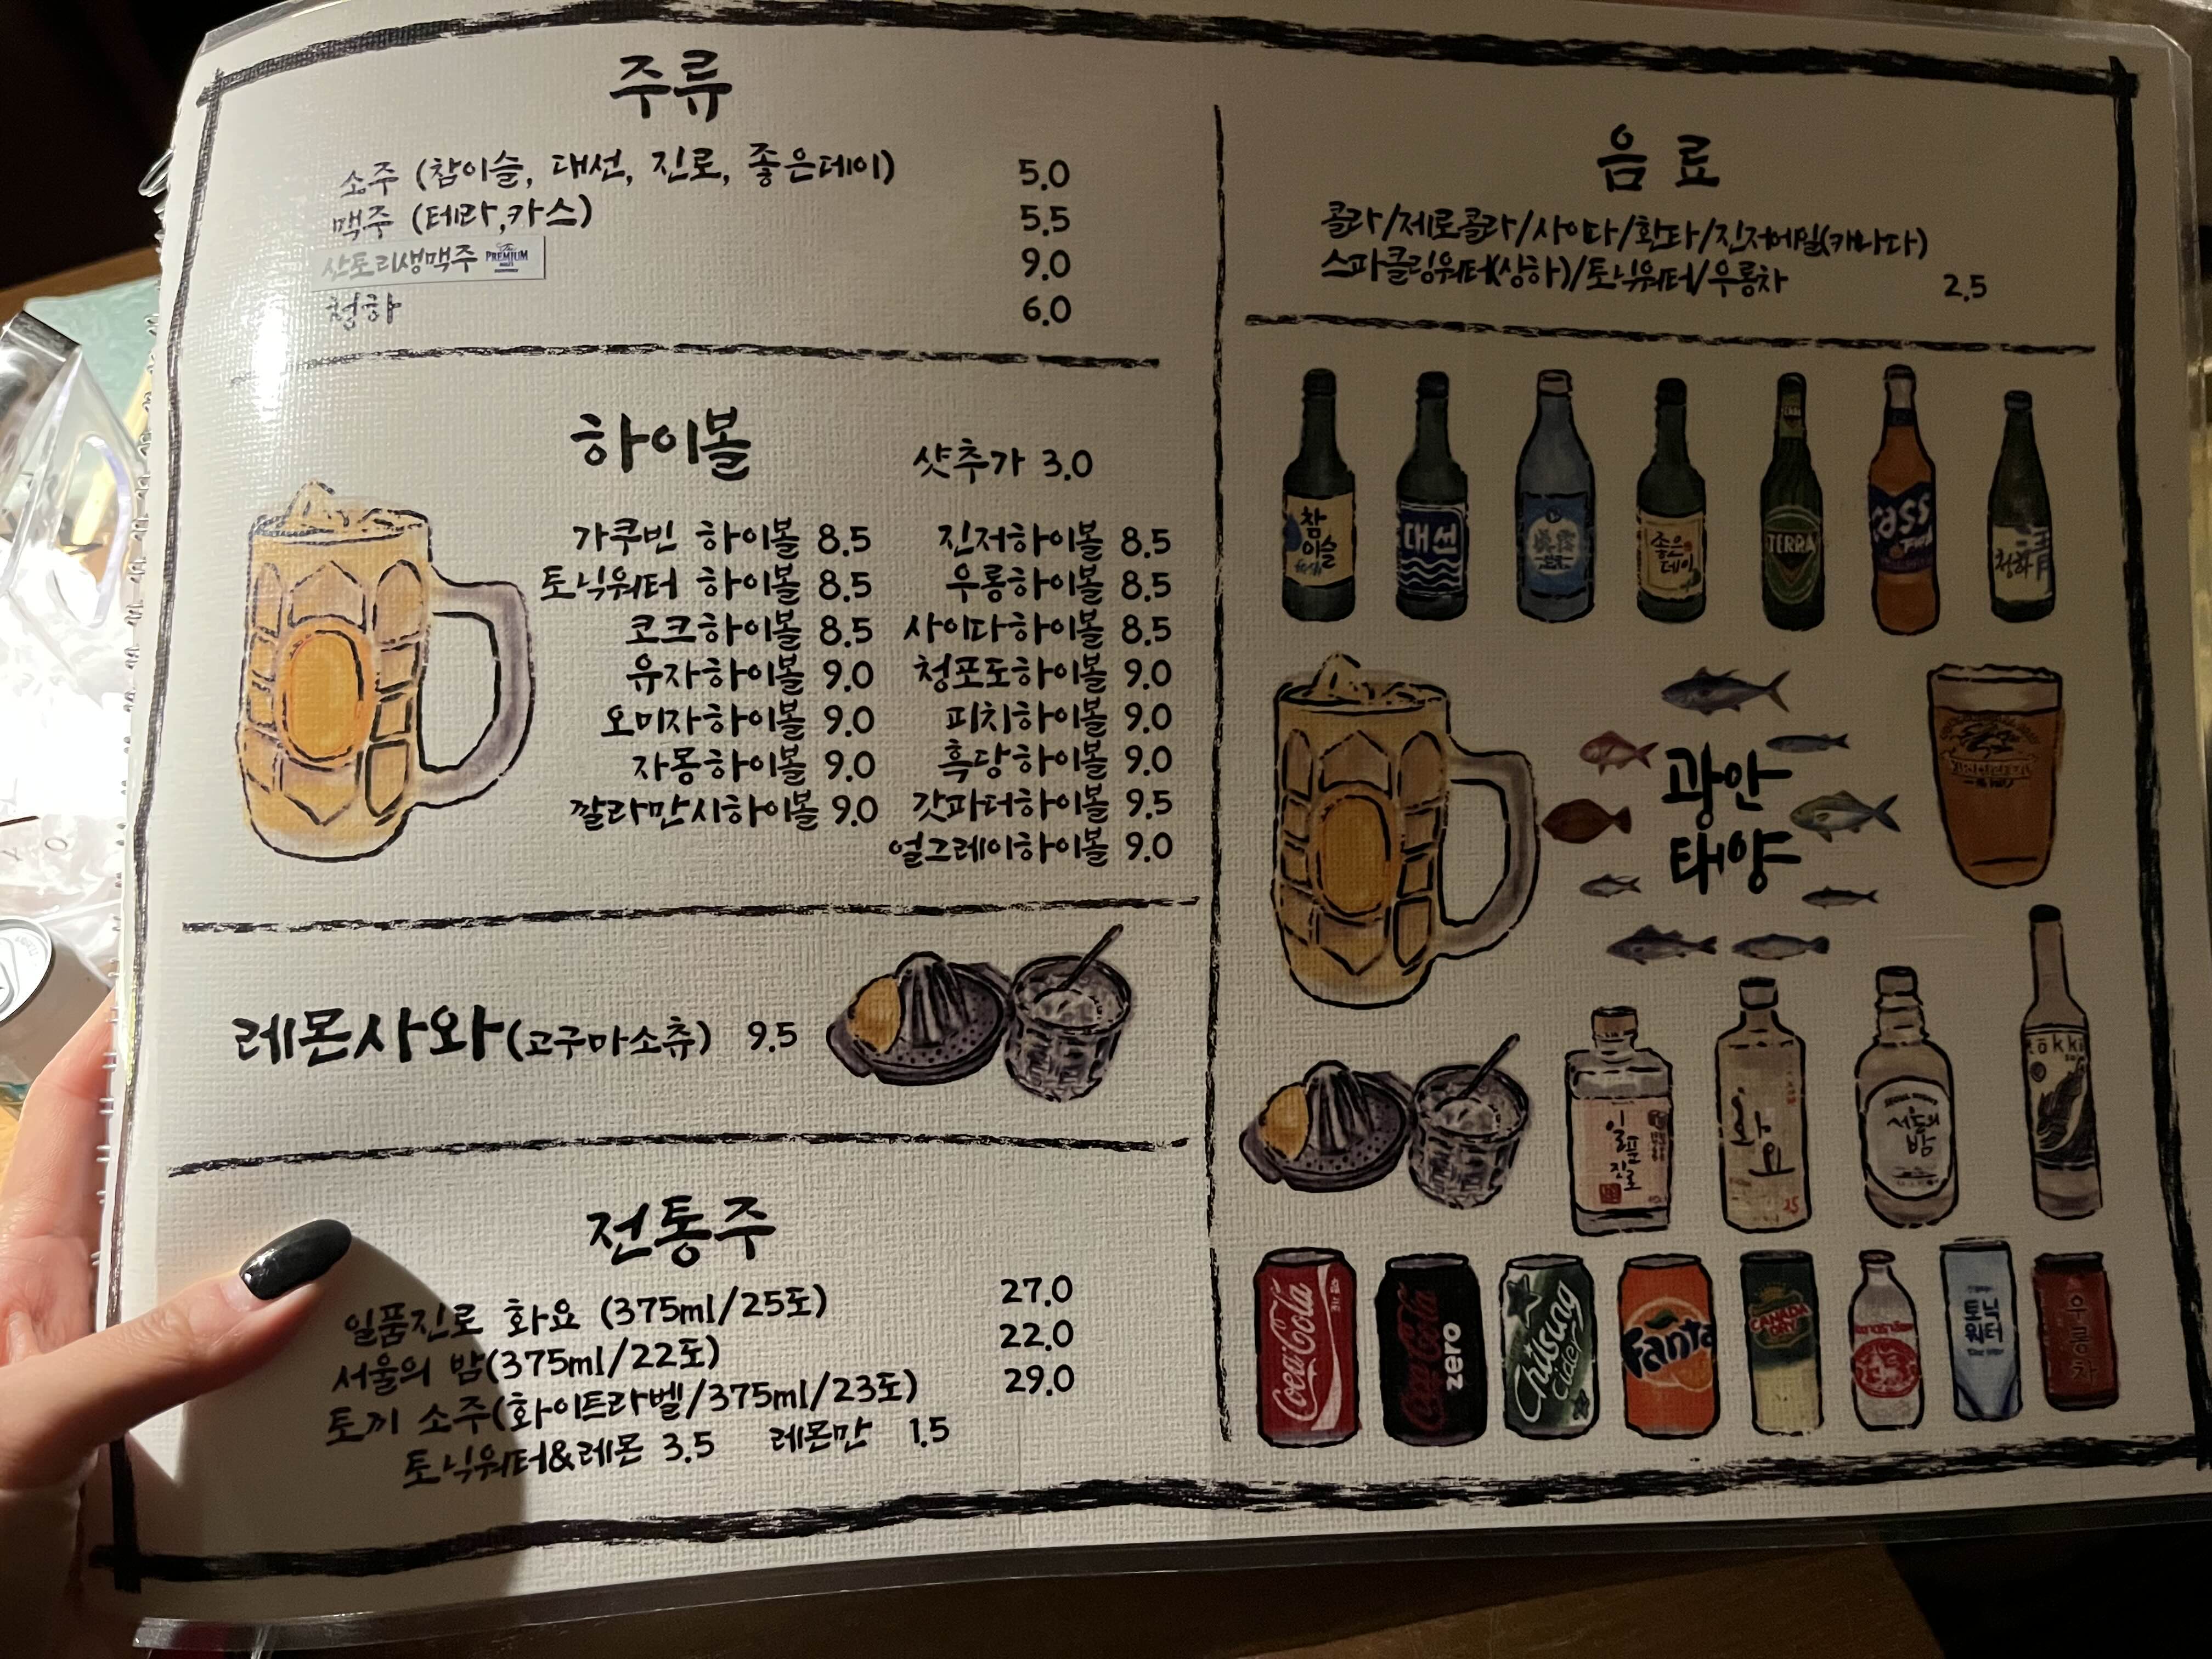 주류
소주 (참이슬, 대선, 진로, 좋은데이) 5.0
맥주 (테라,카스) 5.5
산토리생맥주 PREMIUM 9.0
청하 6.0
하이볼 샷추가 3.0
가쿠빈 하이볼 8.5
토닉워터 하이볼 8.5
코크하이볼 8.5
유자하이볼 9.0
오미자하이볼 9.0
자몽하이볼 9.0
깔라만시하이볼 9.0
진저하이볼 8.5
우롱하이볼 8.5
사이다하이볼 8.5
청포도하이볼 9.0
피치하이볼 9.0
흑당하이볼 9.0
갓파더하이볼 9.5
얼그레이하이볼 9.0
레몬사와(고구마소츄) 9.5
전통주
일품진로 화요 (375ml/25도) 27.0
서울의 밤(375ml/22도) 22.0
토끼 소주(화이트라벨/375ml/23도) 29.0
토닉워터&레몬 3.5 레몬만 1.5
음료
콜라/제로콜라/사이다/환타/진저에일(캐나다)
스파클링워터(상하)/토닉워터/우롱차 2.5
참
이슬
대선
좋은
데이
TERRA
Cass
청하
광안
태양
일품
진로
화
요
서울의
밤
tokki
Coca-Cola
Coca-Cola
zero
Chilsung
Cider
Fanta
CANADA
DRY
토닉
워터
우
롱
차